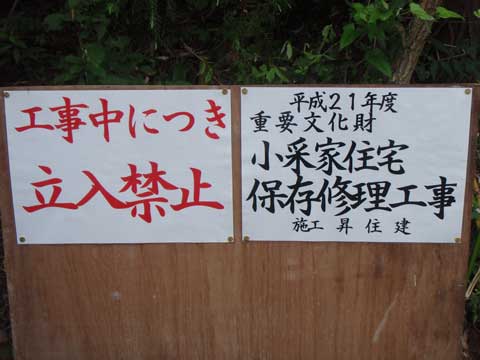 工事中につき
立入禁止
平成21年度
重要文化財
小采家住宅
保存修理工事
施工 昇 住 建